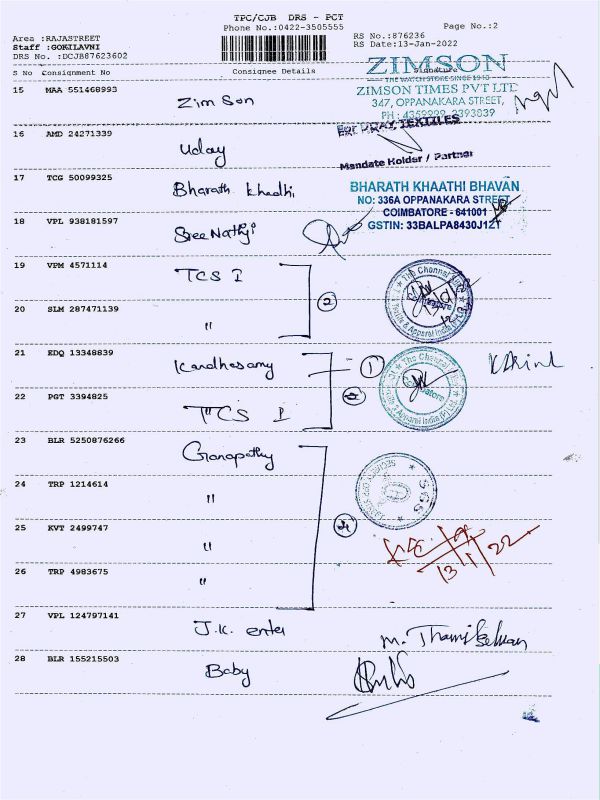 TPC/CJB DRS - PCT
Phone No.:0422-3505555
Page No.:2
Area :RAJASTREET
Staff :GOKILAVNI
DRS No. :DCJB87623602
RS No.:876236
RS Date:13-Jan-2022
S No Consignment No Consignee Details Signature
ZIMSON
THE WATCH STORE SINCE 1948
ZIMSON TIMES PVT LTD
347, OPPANAKARA STREET,
15 MAA 551468993 Zim Son
16 AMD 24271339 Uday
TEXTILES
Mandate Holder / Partner
17 TCG 50099325 Bharath Khadhi
BHARATH KHAATHI BHAVAN
NO: 336A OPPANAKARA STREET
COIMBATORE - 641001
GSTIN: 33BALPA8430J1ZT
18 VPL 938181597 Sree Nathji
19 VPM 4571114 TCS I
2
20 SLM 287471139 "
The Chennai Silks
Coimbatore
Textile & Apparel India (P) Ltd
21 EDQ 13348839 Kandhasamy
1
22 PGT 3394825 TCS I
2
The Chennai Silks
Coimbatore
Textile & Apparel India (P) Ltd
23 BLR 5250876266 Ganapathy
24 TRP 1214614 "
SGS
25 KVT 2499747 "
4
13/1/22
26 TRP 4983675 "
27 VPL 124797141 J.K. enter
M. Thamilselvan
28 BLR 155215503 Baby